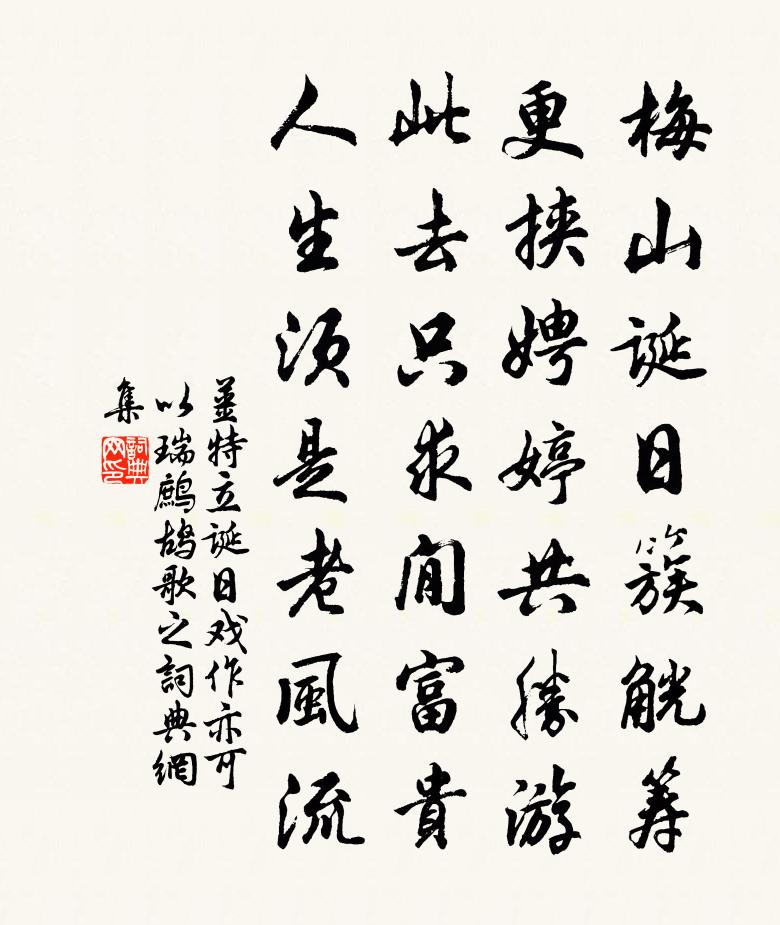 梅山誕日簇觥籌
更挾娉婷共勝游
此去只求閒富貴
人生須是老風流
薑特立誕日戏作亦可
以瑞鷓鴣歌之詞典網
集
詞典網印